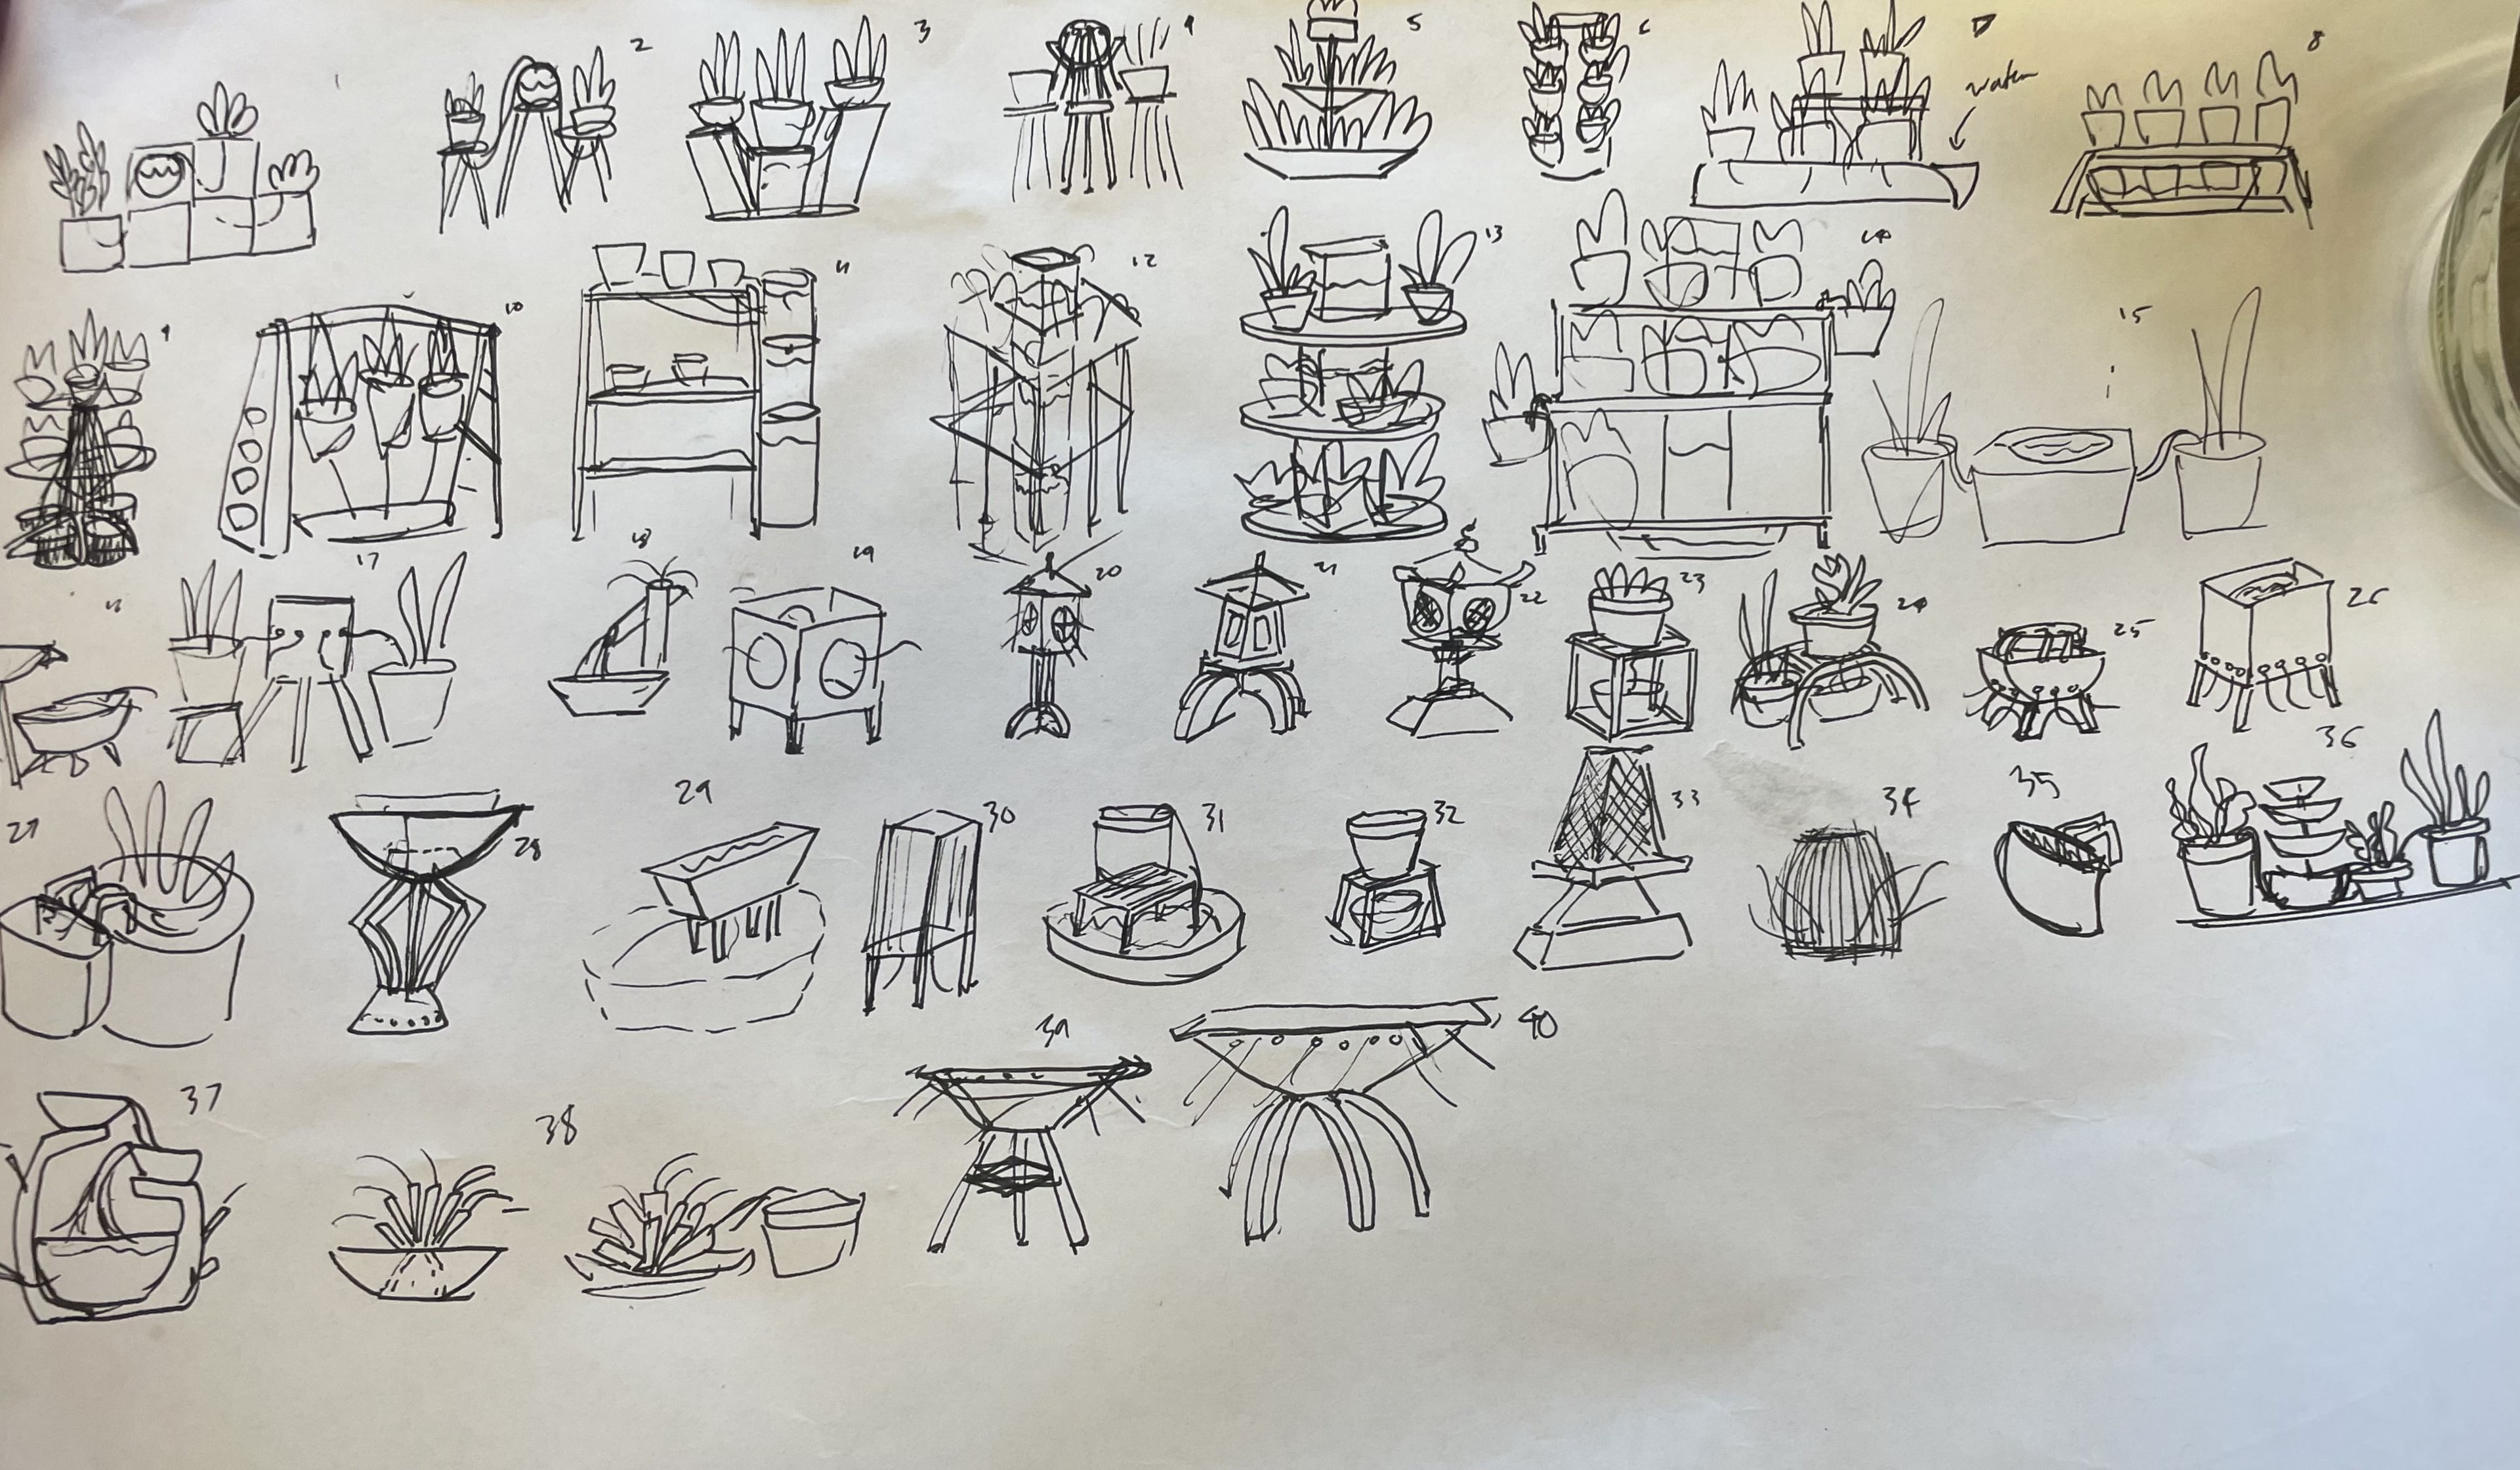 1
2
3
4
5
6
7
water
8
9
10
11
12
13
14
15
16
17
18
19
20
21
22
23
24
25
26
27
28
29
30
31
32
33
34
35
36
37
38
39
40